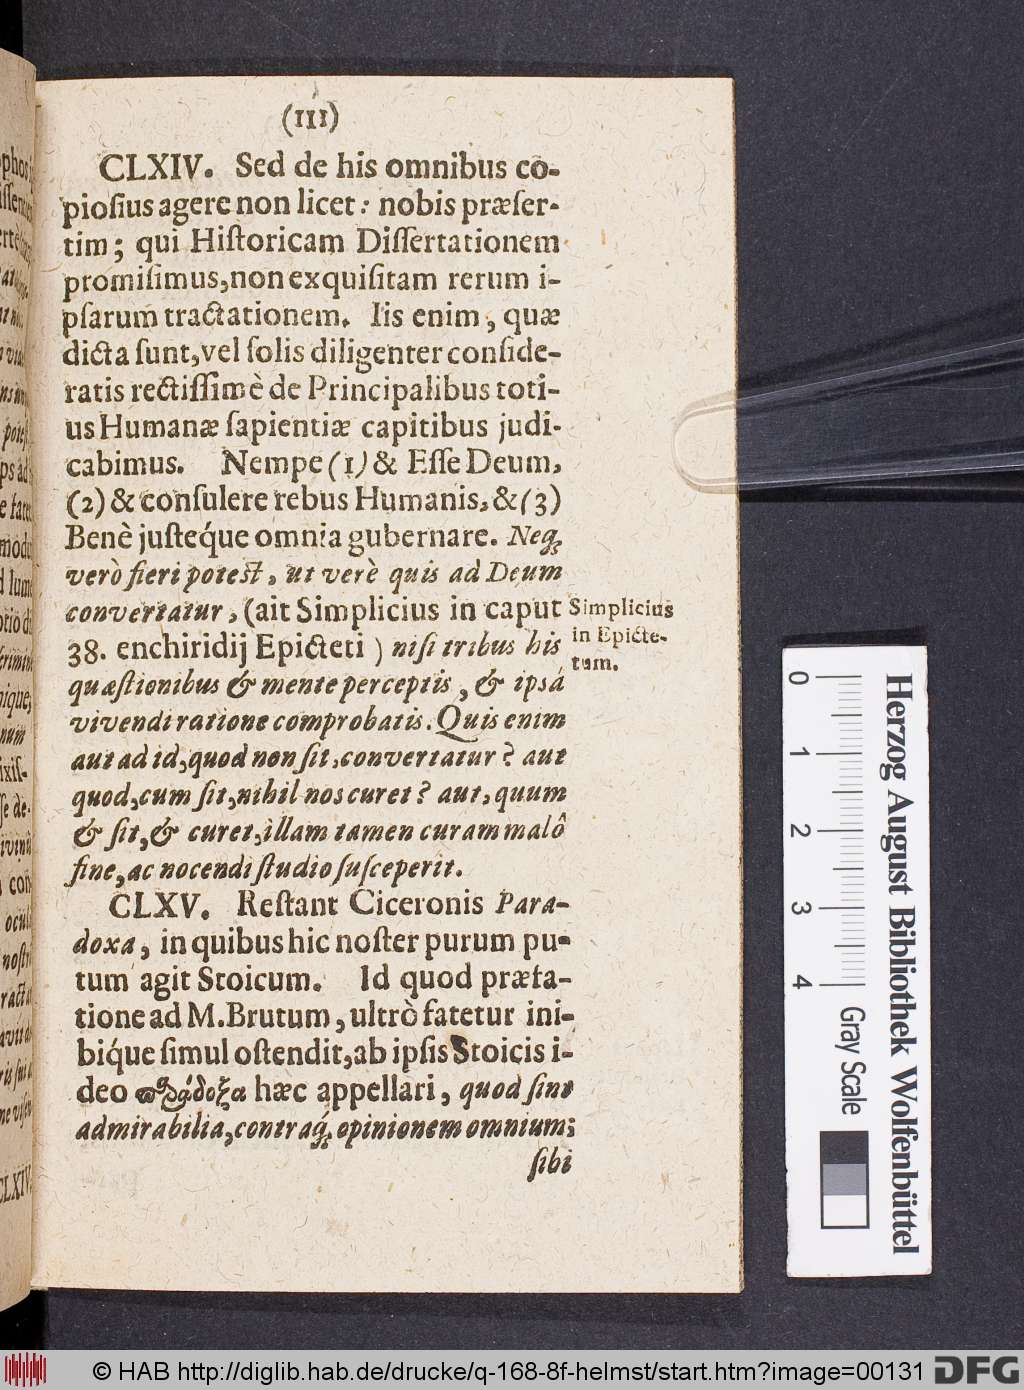 (111)
CLXIV. Sed de his omnibus co-
pioſius agere non licet: nobis præſer-
tim; qui Hiſtoricam Diſſertationem
promiſimus, non exquiſitam rerum i-
pſarum tractationem. Iis enim, quæ
dicta ſunt, vel ſolis diligenter conſide-
ratis rectiſſimè de Principalibus toti-
us Humanæ ſapientiæ capitibus judi-
cabimus. Nempe (1) & Eſſe Deum,
(2) & conſulere rebus Humanis, & (3)
Benè juſteq́ue omnia gubernare. Neq;
verò fieri poteſt, ut verè quis ad Deum
convertatur, (ait Simplicius in caput
38. enchiridij Epicteti) niſi tribus his
quæſtionibus & mente perceptis, & ipsâ
vivendi ratione comprobatis. Quis enim
aut ad id, quod non ſit, convertatur? aut
quod, cum ſit, nihil nos curet? aut, quum
& ſit, & curet, illam tamen curam malô
fine, ac nocendi ſtudio ſuſceperit.
Simplicius
in Epicte-
tum.
CLXV. Reſtant Ciceronis Para-
doxa, in quibus hic noſter purum pu-
tum agit Stoicum. Id quod præfa-
tione ad M. Brutum, ultrò fatetur ini-
biq́ue ſimul oſtendit, ab ipſis Stoicis i-
deo παράδοξα hæc appellari, quod ſint
admirabilia, contraq́; opinionem omnium;
ſibi
CLXIV.
0 1 2 3 4
Gray Scale
Herzog August Bibliothek Wolfenbüttel
© HAB http://diglib.hab.de/drucke/q-168-8f-helmst/start.htm?image=00131
DFG